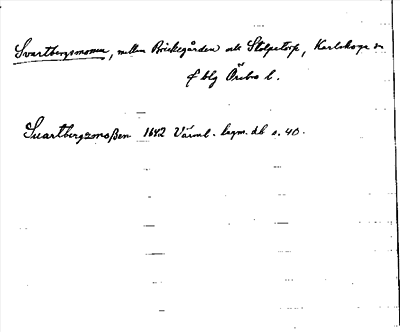 Svartbergsmossen, mellan Brickegården och Stolpetorp, Karlskoga sn
f blg Örebro l.
Suartbergzmoßen 1642 Värml. lagm. db s. 40.